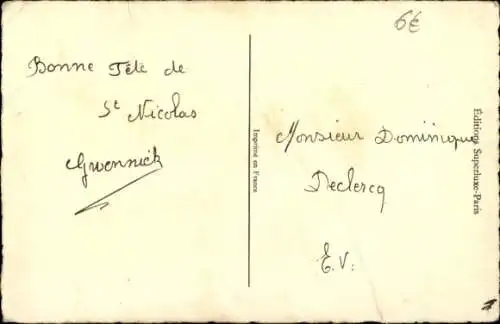 Bonne Fête de
St Nicolas
Gwennick
6€
Monsieur Dominique
Declercq
E.V.
Imprimé en France
Éditions Superluxe-Paris